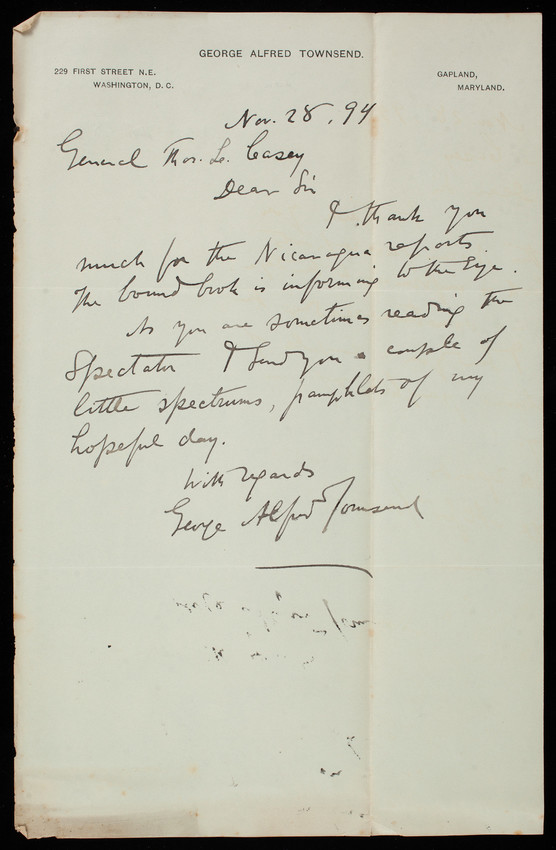 GEORGE ALFRED TOWNSEND.
229 FIRST STREET N.E.
WASHINGTON, D. C.
GAPLAND,
MARYLAND.
Nov. 28, 94
General Thos. L. Casey
Dear Sir
I thank you
much for the Nicaragua reports.
The bound book is informing to the Eye.
As you are sometimes reading the
Spectator I send you a couple of
little spectrums, pamphlets of my
hopeful day.
With regards
George Alfred Townsend